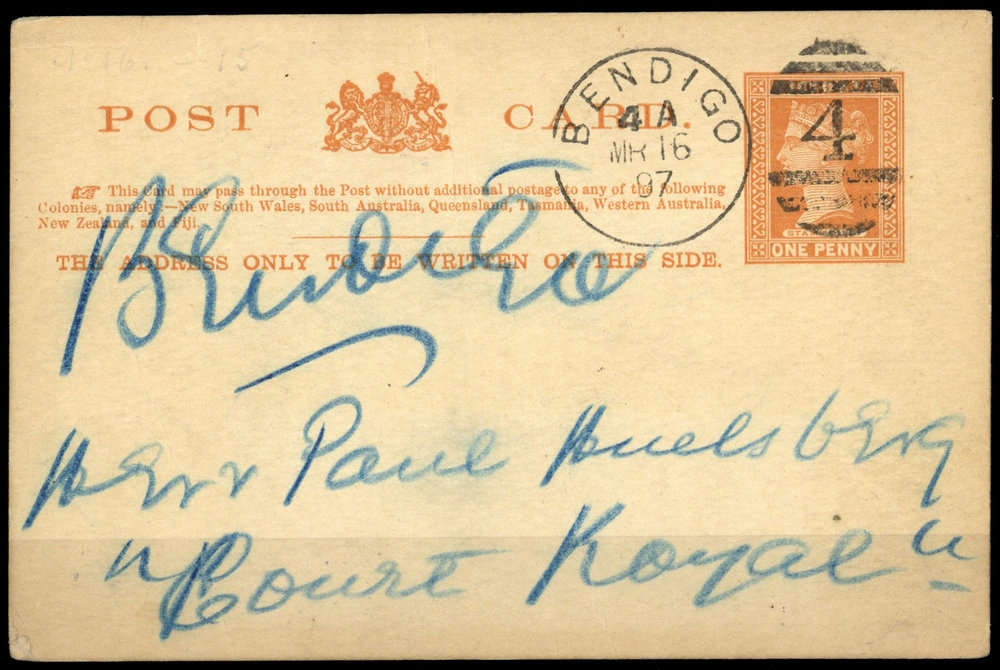 POST CARD.
BENDIGO
4 A
MR 16
97
4
This Card may pass through the Post without additional postage to any of the following
Colonies, namely:—New South Wales, South Australia, Queensland, Tasmania, Western Australia,
New Zealand, and Fiji.
THE ADDRESS ONLY TO BE WRITTEN ON THIS SIDE.
ONE PENNY
Bendigo
Herr Paul Huelsberg
"Court Royal"